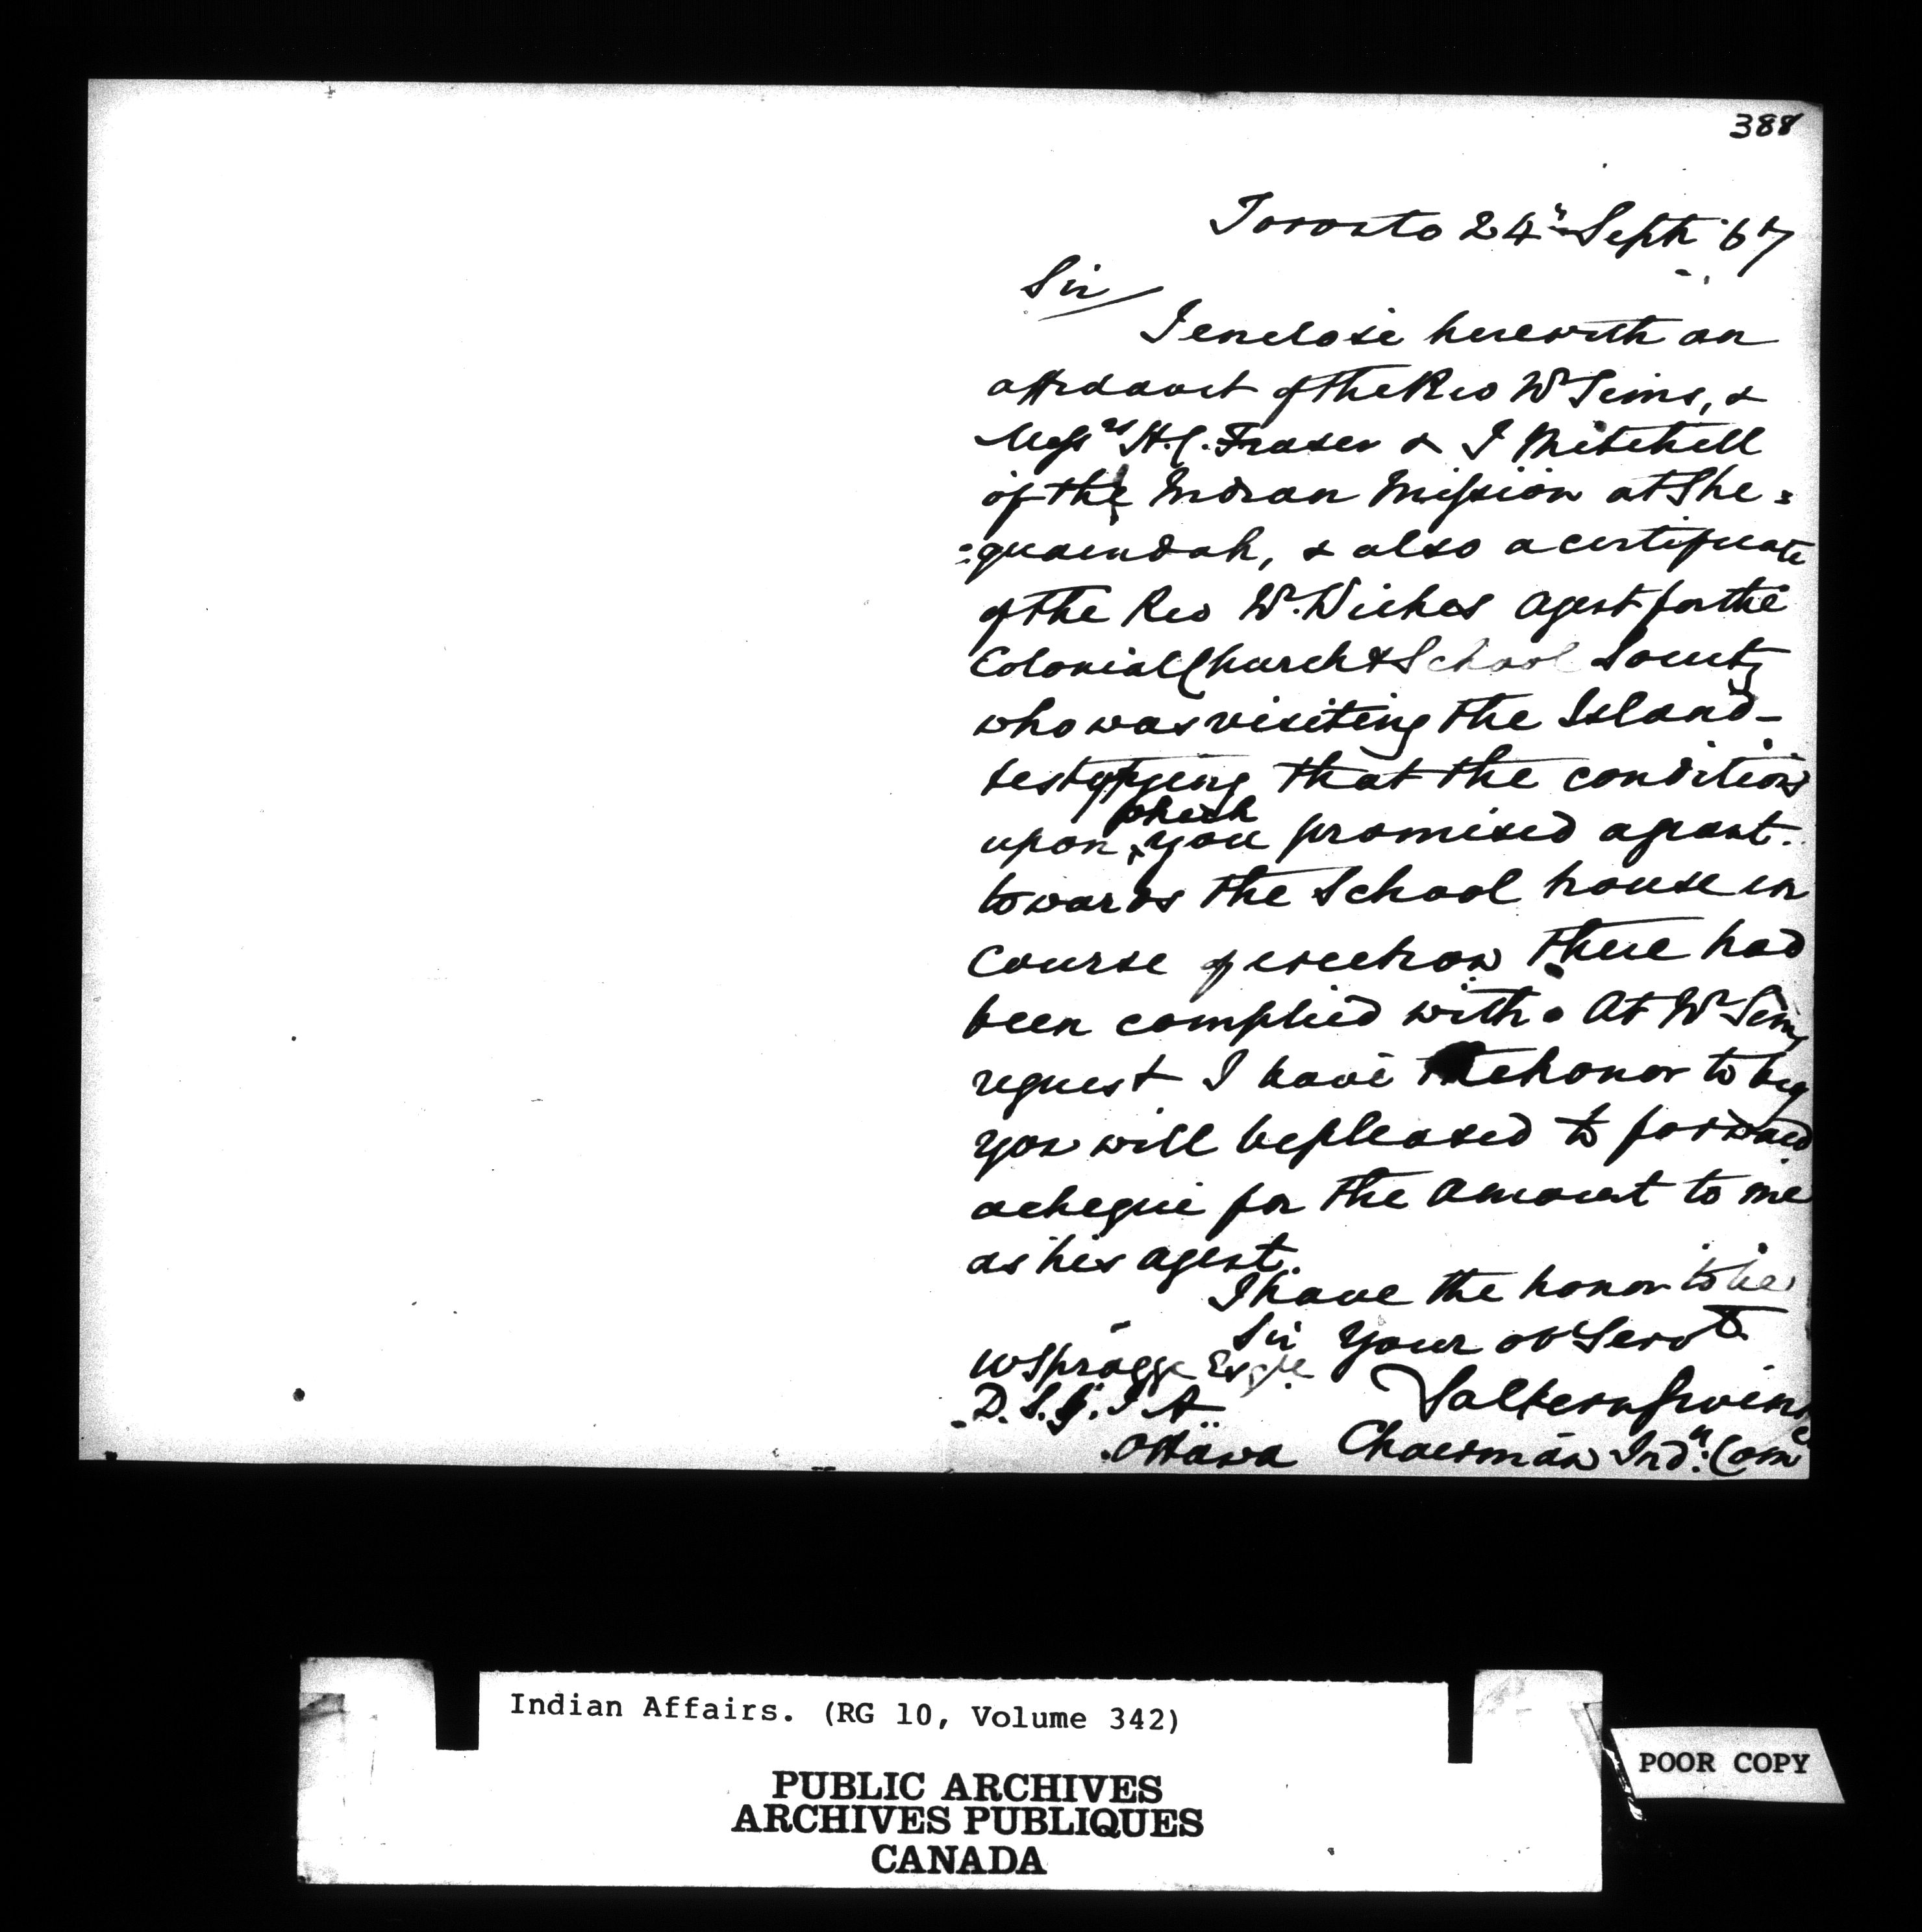 388
Toronto 24th Sept '67
Sir
I enclose herewith an
affidavit of the Rev Mr Sims, &
Messrs H.C. Frazer & J Mitchell
of the Indian Mission at She=
=quaindah, & also a certificate
of the Rev Mr. Wickes agent for the
Colonial Church & School Society
who was visiting the Island_
testifying that the condition
upon which you promised a grant
towards the School house in
course of erection there had
been complied with. At Mr Sims
request I have the honor to beg
you will be pleased to forward
a cheque for the amount to me
as his agent.
I have the honor to be
Sir Your ob Servt
W Spragge Esqre
D. S. G. I A
Ottawa
Saltern Givins
Chairman Indn. Come
Indian Affairs. (RG 10, Volume 342)
PUBLIC ARCHIVES
ARCHIVES PUBLIQUES
CANADA
POOR COPY